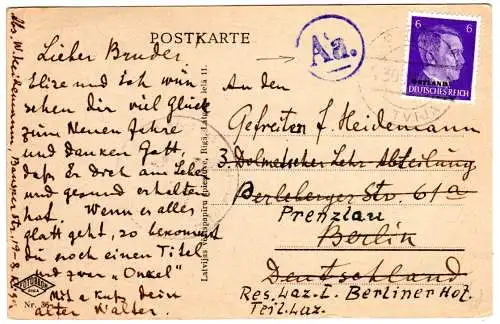 POSTKARTE
Lieber Bruder
Elise und ich wün
schen dir viel Glück
zum Neuen Jahre
und danken Gott,
daß Er dich am Leben
und gesund erhalten
hat. Wenn er alles
glatt geht, so bekommst
du noch einen Titel
und zwar „Onkel"
Mit a Kuß dein
alter Walter.
Abs. W. Heidemann, Bauskerstr. 19-8
Latvijas vērtspapīru spiestuve, Rīgā, ielā 11.
FOTOBROM
RIGA
Nr. 36
Aa.
6 6
OSTLAND
DEUTSCHES REICH
An den
Gefreiten J. Heidemann
3. Dolmetscher Lehr Abteilung
Berleberger Str. 61a
Prenzlau
Berlin
Deutschland
Res. Laz. I. Berliner Hof.
Teil. Laz.